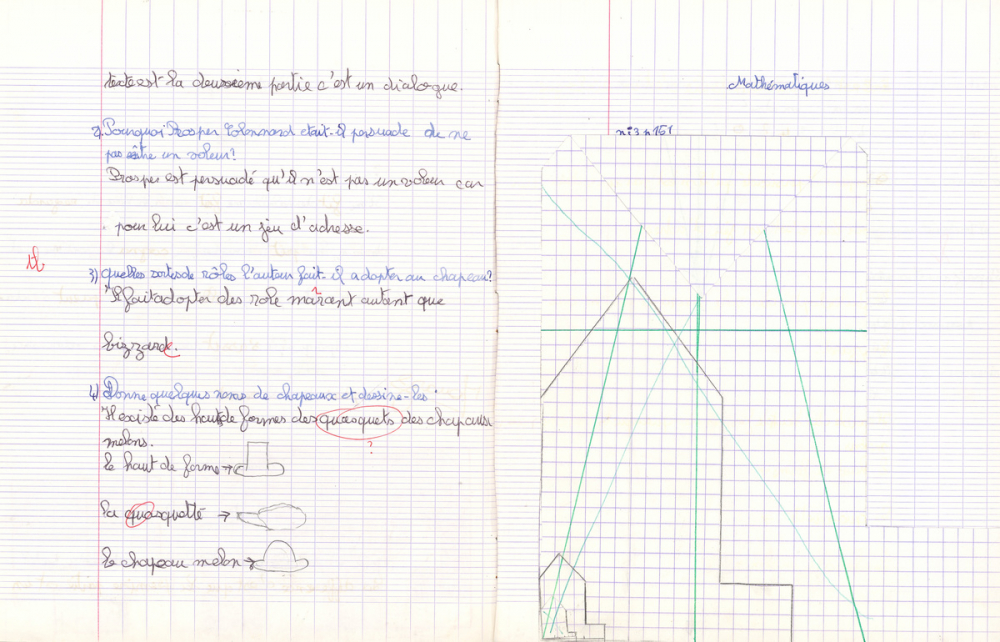 texte est la deuxième partie c'est un dialogue.
2) Pourquoi Prosper était-il persuadé de ne
pas être un voleur?
Prosper est persuadé qu'il n'est pas un voleur car
pour lui c'est un jeu d'adresse.
3) Quelles sortes de rôles l'auteur fait-il adopter au chapeau?
Il fait adopter des role marrent autent que
bizzarde.
4) Donne quelques noms de chapeaux et dessine-les.
Il existe des haut de formes des quasquets des chapaux
melons.
?
le haut de forme →
la quasquette →
le chapeau melon →
Mathématiques
n°3 p 161